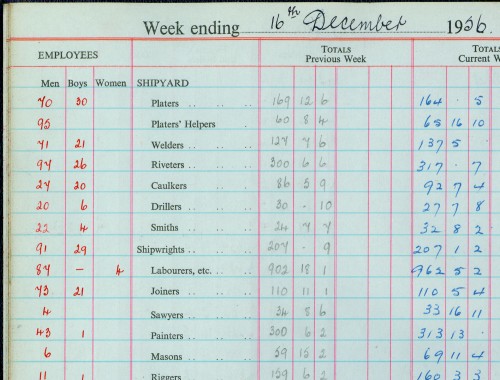 Week ending 16th December 1956.
EMPLOYEES TOTALS Previous Week TOTALS Current W
Men Boys Women SHIPYARD
70 30 Platers 169 12 6 164 . 5
95 Platers' Helpers 60 8 4 65 16 10
71 21 Welders 127 7 6 137 5
97 26 Riveters 300 6 6 317 . 7
27 20 Caulkers 86 5 9 92 7 4
20 6 Drillers 30 - 10 27 7 8
22 4 Smiths 24 7 7 32 8 2
91 29 Shipwrights 207 - 9 207 1 2
87 - 4 Labourers, etc. 902 18 1 962 5 2
73 21 Joiners 110 11 1 110 5 4
4 Sawyers 34 8 6 33 16 11
43 1 Painters 300 6 2 313 13 .
6 Masons 59 15 2 69 11 4
11 1 Riggers 159 6 2 160 3 3